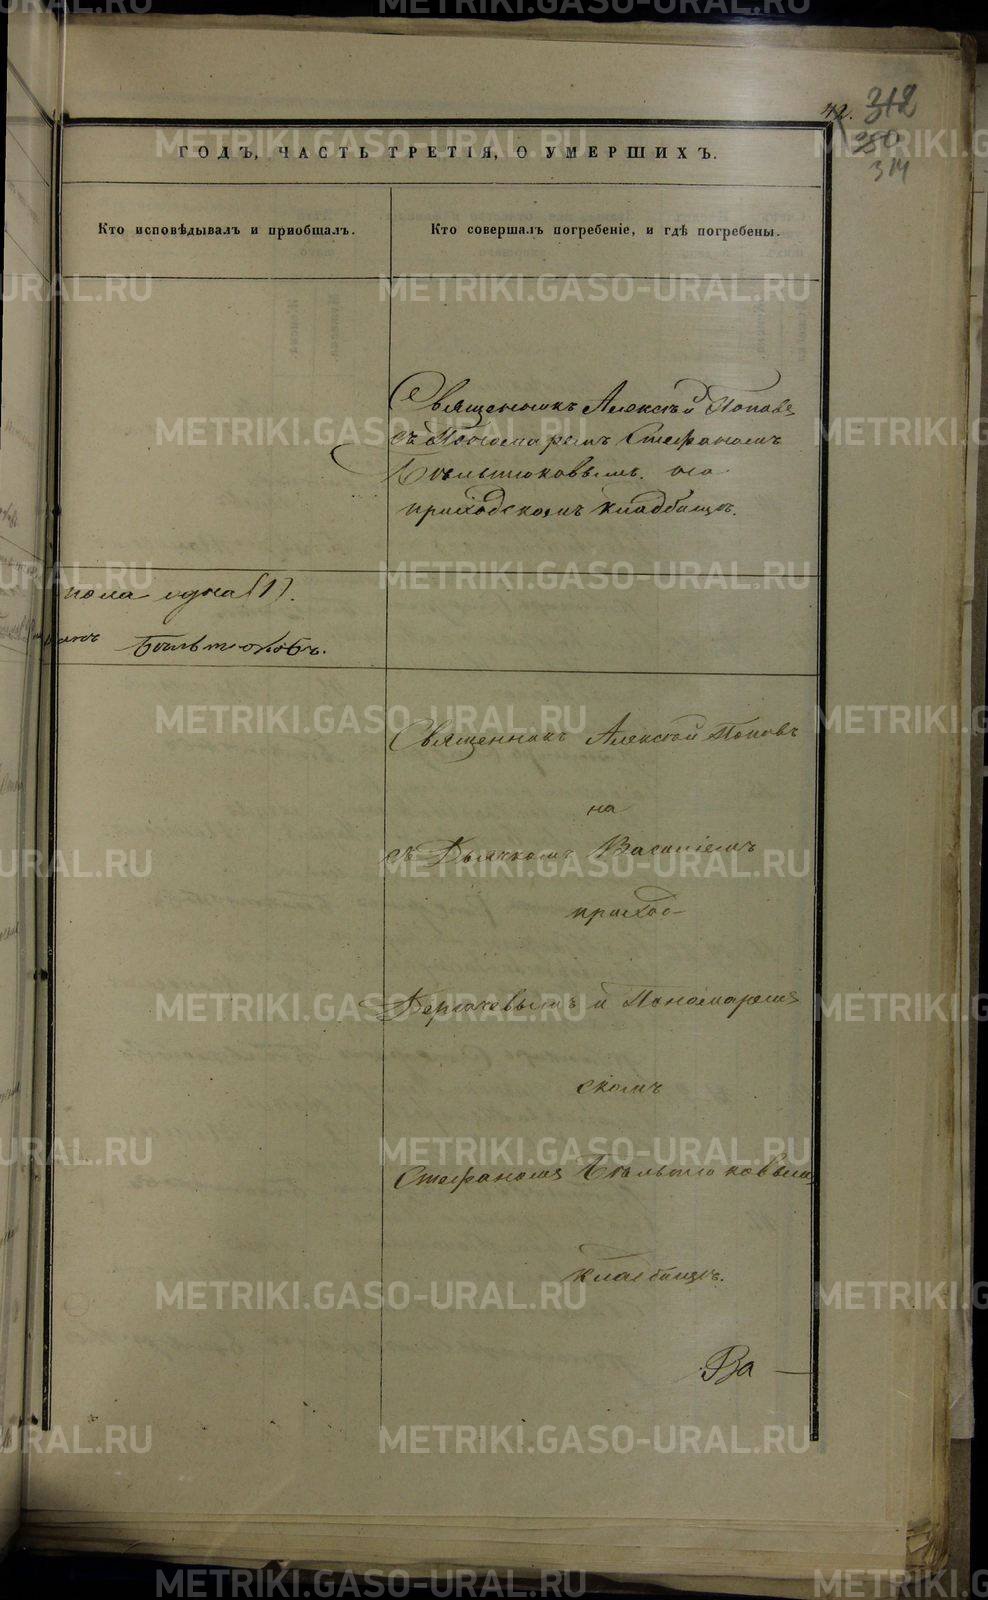 42. 312
350
314
ГОДЪ, ЧАСТЬ ТРЕТІЯ, О УМЕРШИХЪ.
Кто исповѣдывалъ и пріобщалъ.
Кто совершалъ погребеніе, и гдѣ погребены.
Священникъ Алексѣй Поповъ
съ Пономаремъ Стефаномъ
Бѣльтюковымъ. на
приходскомъ кладбищѣ.
пола одна (1).
Бѣльтюковъ.
Священникъ Алексѣй Поповъ
на
съ Дьячкомъ Василіемъ
приход-
Дергачевымъ и Пономаремъ
скомъ
Стефаномъ Бѣльтюковымъ
кладбищѣ.
Ва —
METRIKI.GASO-URAL.RU